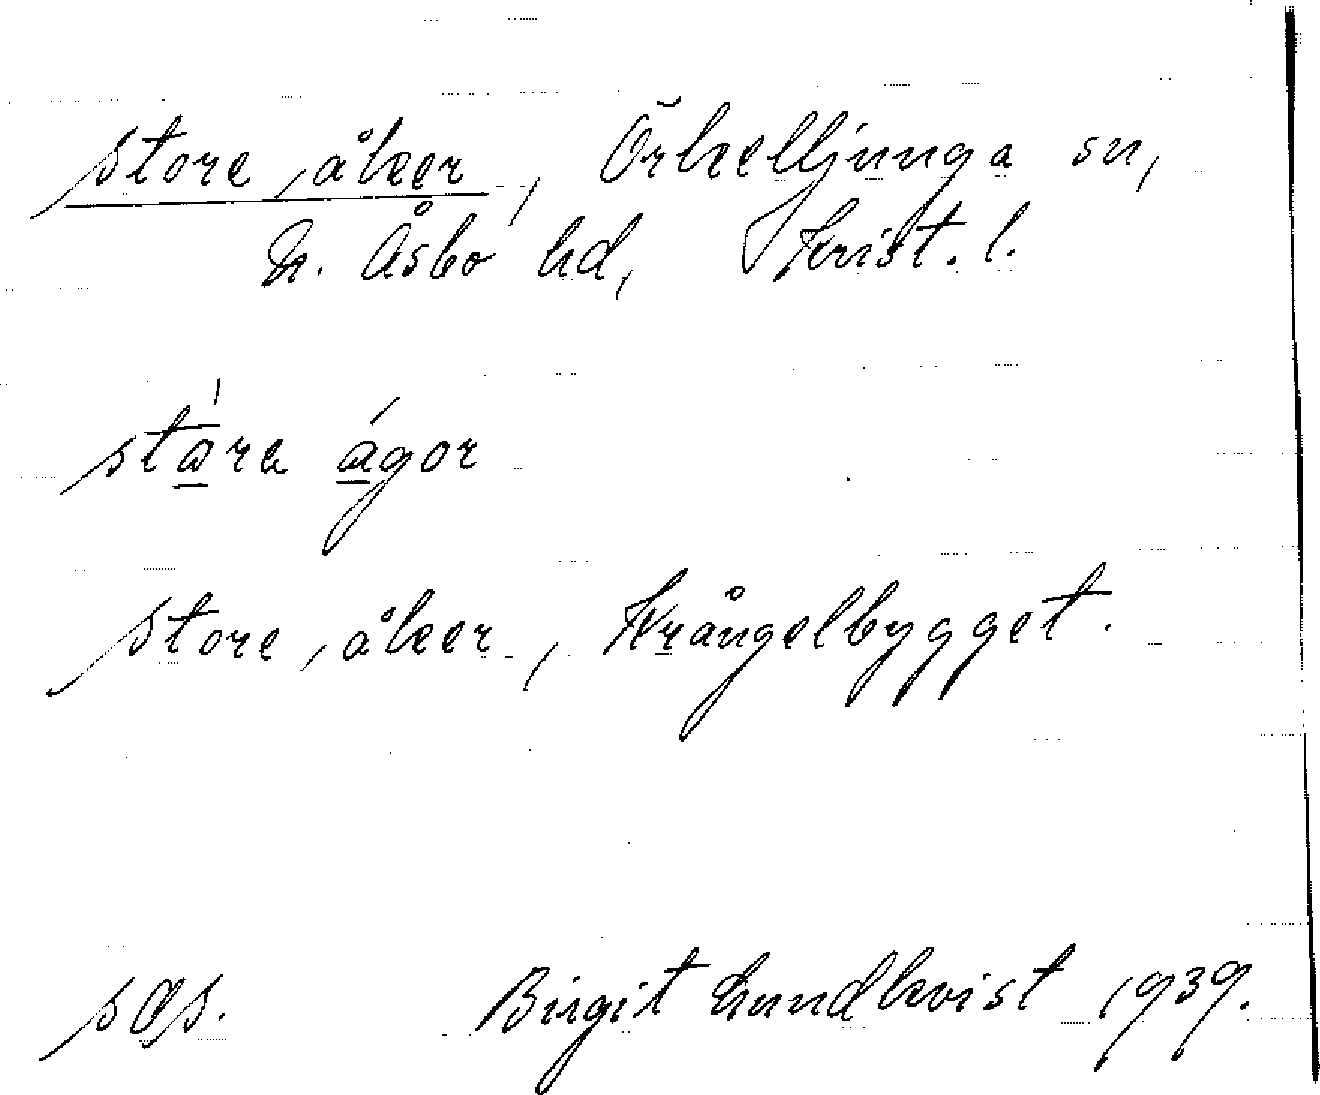 store åker, Örkelljunga sn,
N. Åsbo hd, Krist. l.
stára ágor
store åker, Krångelbygget.
sås.
Birgit Lundkvist 1939.